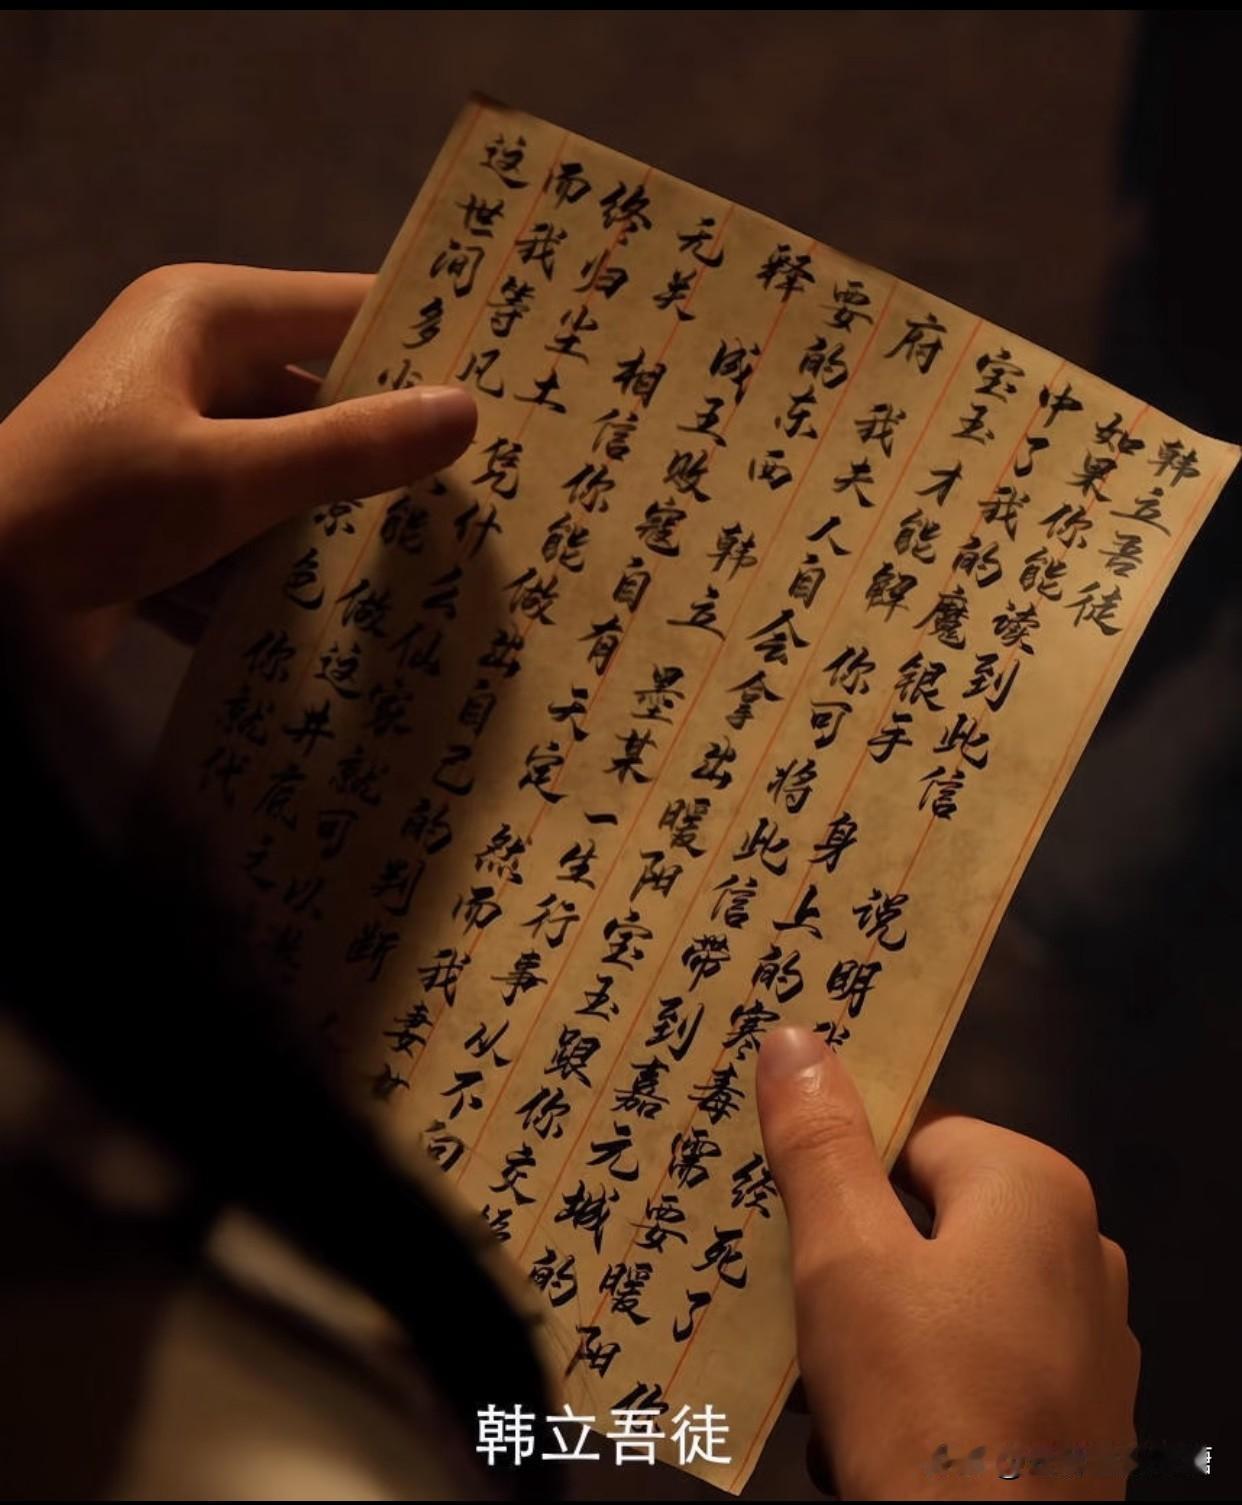 韩立吾徒
如果你能读到此信 说明我经死了 你
中了我的魔银手 身上的寒毒需要暖阳
宝玉才能解 你可将此信带到嘉元城的
府 我夫人自会拿出暖阳宝玉跟你交
要的东西 韩立 墨某一生行事从不向
释 成王败寇自有天定 然而我妻女
无关 相信你能做出自己的判断
终归尘土 凭什么仙家就可以
而我等凡能做这井底之
这世间多少景色 你就代
韩立吾徒